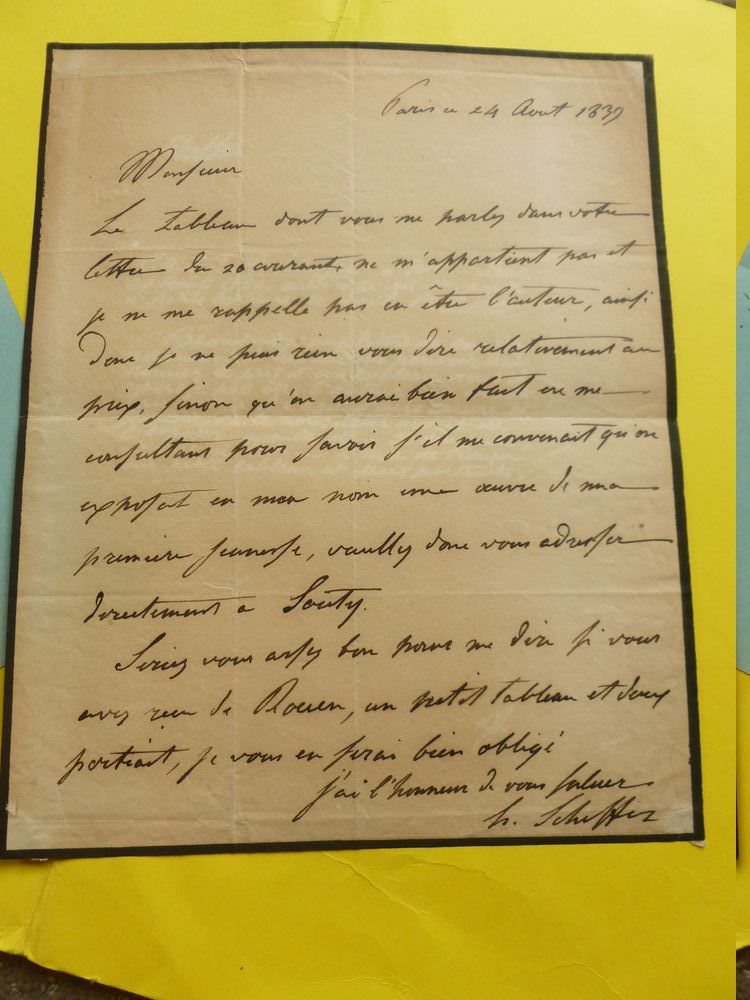 Paris ce 24 Aout 1839
Monsieur
Le tableau dont vous me parlez dans votre
lettre du 20 courant, ne m'appartient pas et
je ne me rappelle pas en être l'auteur, ainsi
donc je ne puis rien vous dire relativement au
prix, sinon qu'on aurai bien fait en me
consultant pour savoir s'il me convenait qu'on
exposat en mon nom une œuvre de ma
premiere jeunesse, veuillez donc vous adresser
directement a Souty.
Seriez vous assez bon pour me dire si vous
avez reçu de Rouen, un petit tableau et deux
portrait, je vous en serai bien obligé
j'ai l'honneur de vous saluer
h. Scheffer